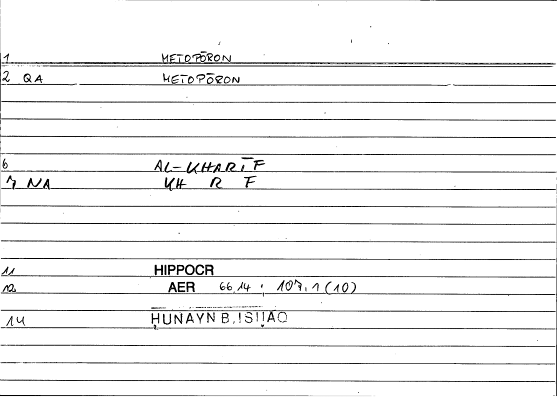 1 METOPŌRON
2 QA METOPŌRON
6 AL-KHARĪF
7 NA KH R F
11 HIPPOCR
12 AER 66,14 ; 107,1 (10)
14 ḤUNAYN B. ISḤĀQ